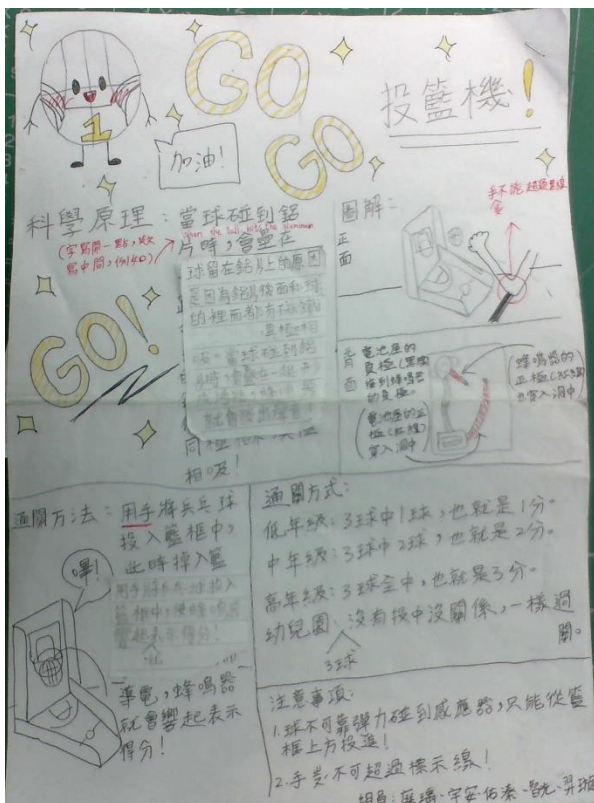 GO
GO
GO!
1
加油!
投籃機!
科學原理:當球碰到鋁
片時,會疊在
When the ball hits the Aluminum
(字點開一點,或
寫中間,例如)
球留在鋁片上的原因
是因為鋁片後面和球
的裡面都有磁鐵
異極相
吸。當球碰到鋁
就會發出聲音!
相吸!
圖解:
正
面
手不能超過黑線
背
面
電池座的
負極(黑線)
接到蜂鳴器
的負極。
(電池座的正
極(紅線)
穿入洞中)
(蜂鳴器的
正極(紅線)
也穿入洞中)
通關方法:用手將乒乓球
投入籃框中,
此時掉入籃
用手將乒乓球投入
籃框中,使蜂鳴器
響起表示得分!
嗶!
導電,蜂鳴器
就會響起表示
得分!
通關方式:
低年級:3球中1球,也就是1分。
中年級:3球中2球,也就是2分。
高年級:3球全中,也就是3分。
幼兒園:沒有投中沒關係,一樣過
關。
3球
注意事項:
1.球不可靠彈力碰到感應器,只能從籃
框上方投進!
2.手不可超過標示線!
組員: